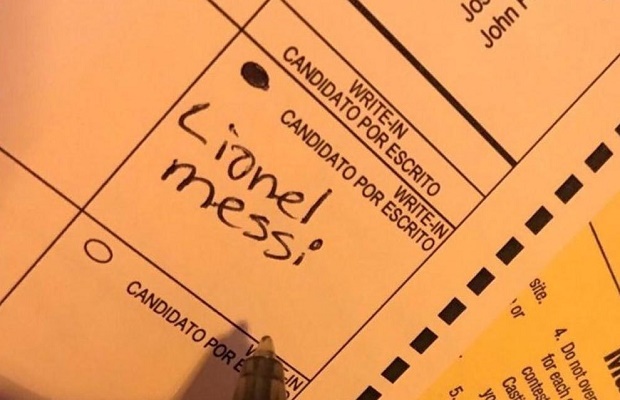 WRITE-IN
CANDIDATO POR ESCRITO
WRITE-IN
CANDIDATO POR ESCRITO
Lionel
messi
CANDIDATO POR
John
site.
or
4. Do not over
for each
5.